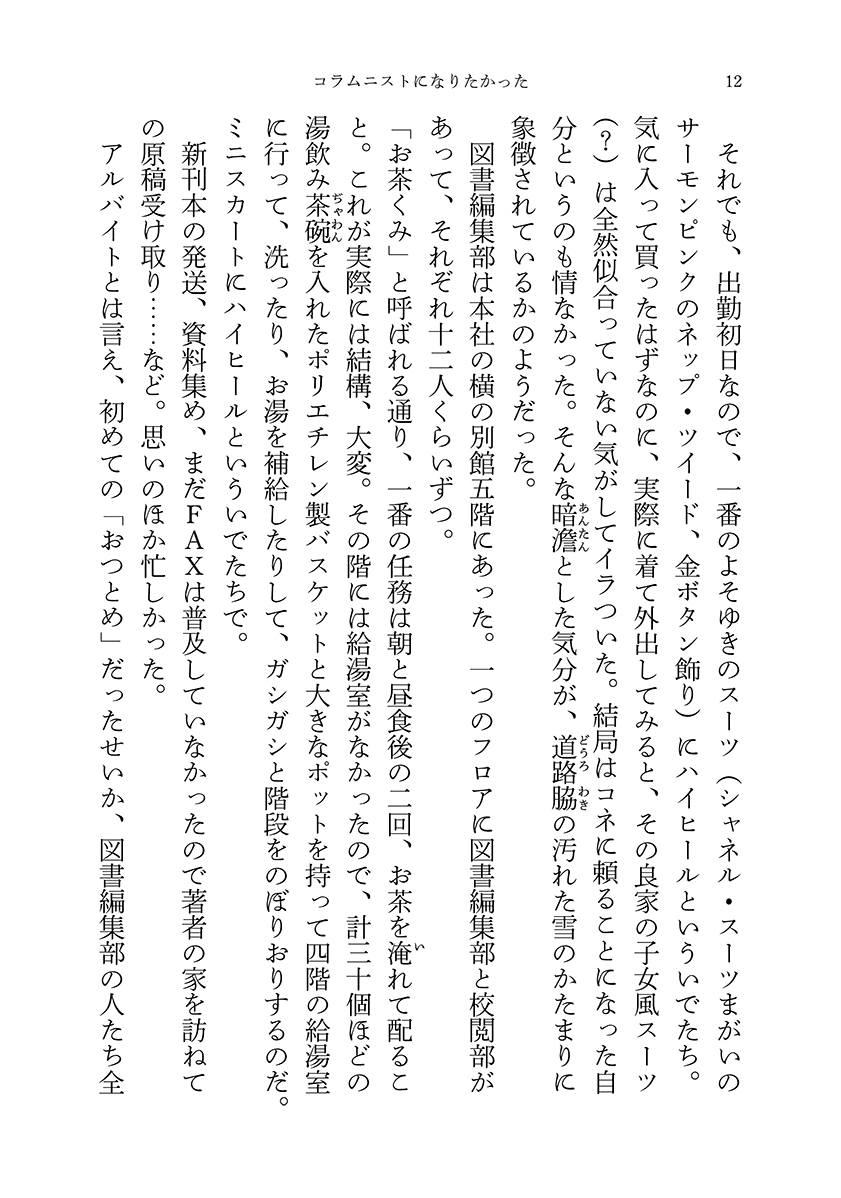 コラムニストになりたかった
12
それでも、出勤初日なので、一番のよそゆきのスーツ（シャネル・スーツまがいの
サーモンピンクのネップ・ツイード、金ボタン飾り）にハイヒールといういでたち。
気に入って買ったはずなのに、実際に着て外出してみると、その良家の子女風スーツ
（？）は全然似合っていない気がしてイラついた。結局はコネに頼ることになった自
分というのも情なかった。そんな暗澹とした気分が、道路脇の汚れた雪のかたまりに
あんたん
どうろ わき
象徴されているかのようだった。
図書編集部は本社の横の別館五階にあった。一つのフロアに図書編集部と校閲部が
あって、それぞれ十二人くらいずつ。
「お茶くみ」と呼ばれる通り、一番の任務は朝と昼食後の二回、お茶を淹れて配るこ
い
と。これが実際には結構、大変。その階には給湯室がなかったので、計三十個ほどの
湯飲み茶碗を入れたポリエチレン製バスケットと大きなポットを持って四階の給湯室
ぢゃわん
に行って、洗ったり、お湯を補給したりして、ガシガシと階段をのぼりおりするのだ。
ミニスカートにハイヒールといういでたちで。
新刊本の発送、資料集め、まだＦＡＸは普及していなかったので著者の家を訪ねて
の原稿受け取り……など。思いのほか忙しかった。
アルバイトとは言え、初めての「おつとめ」だったせいか、図書編集部の人たち全